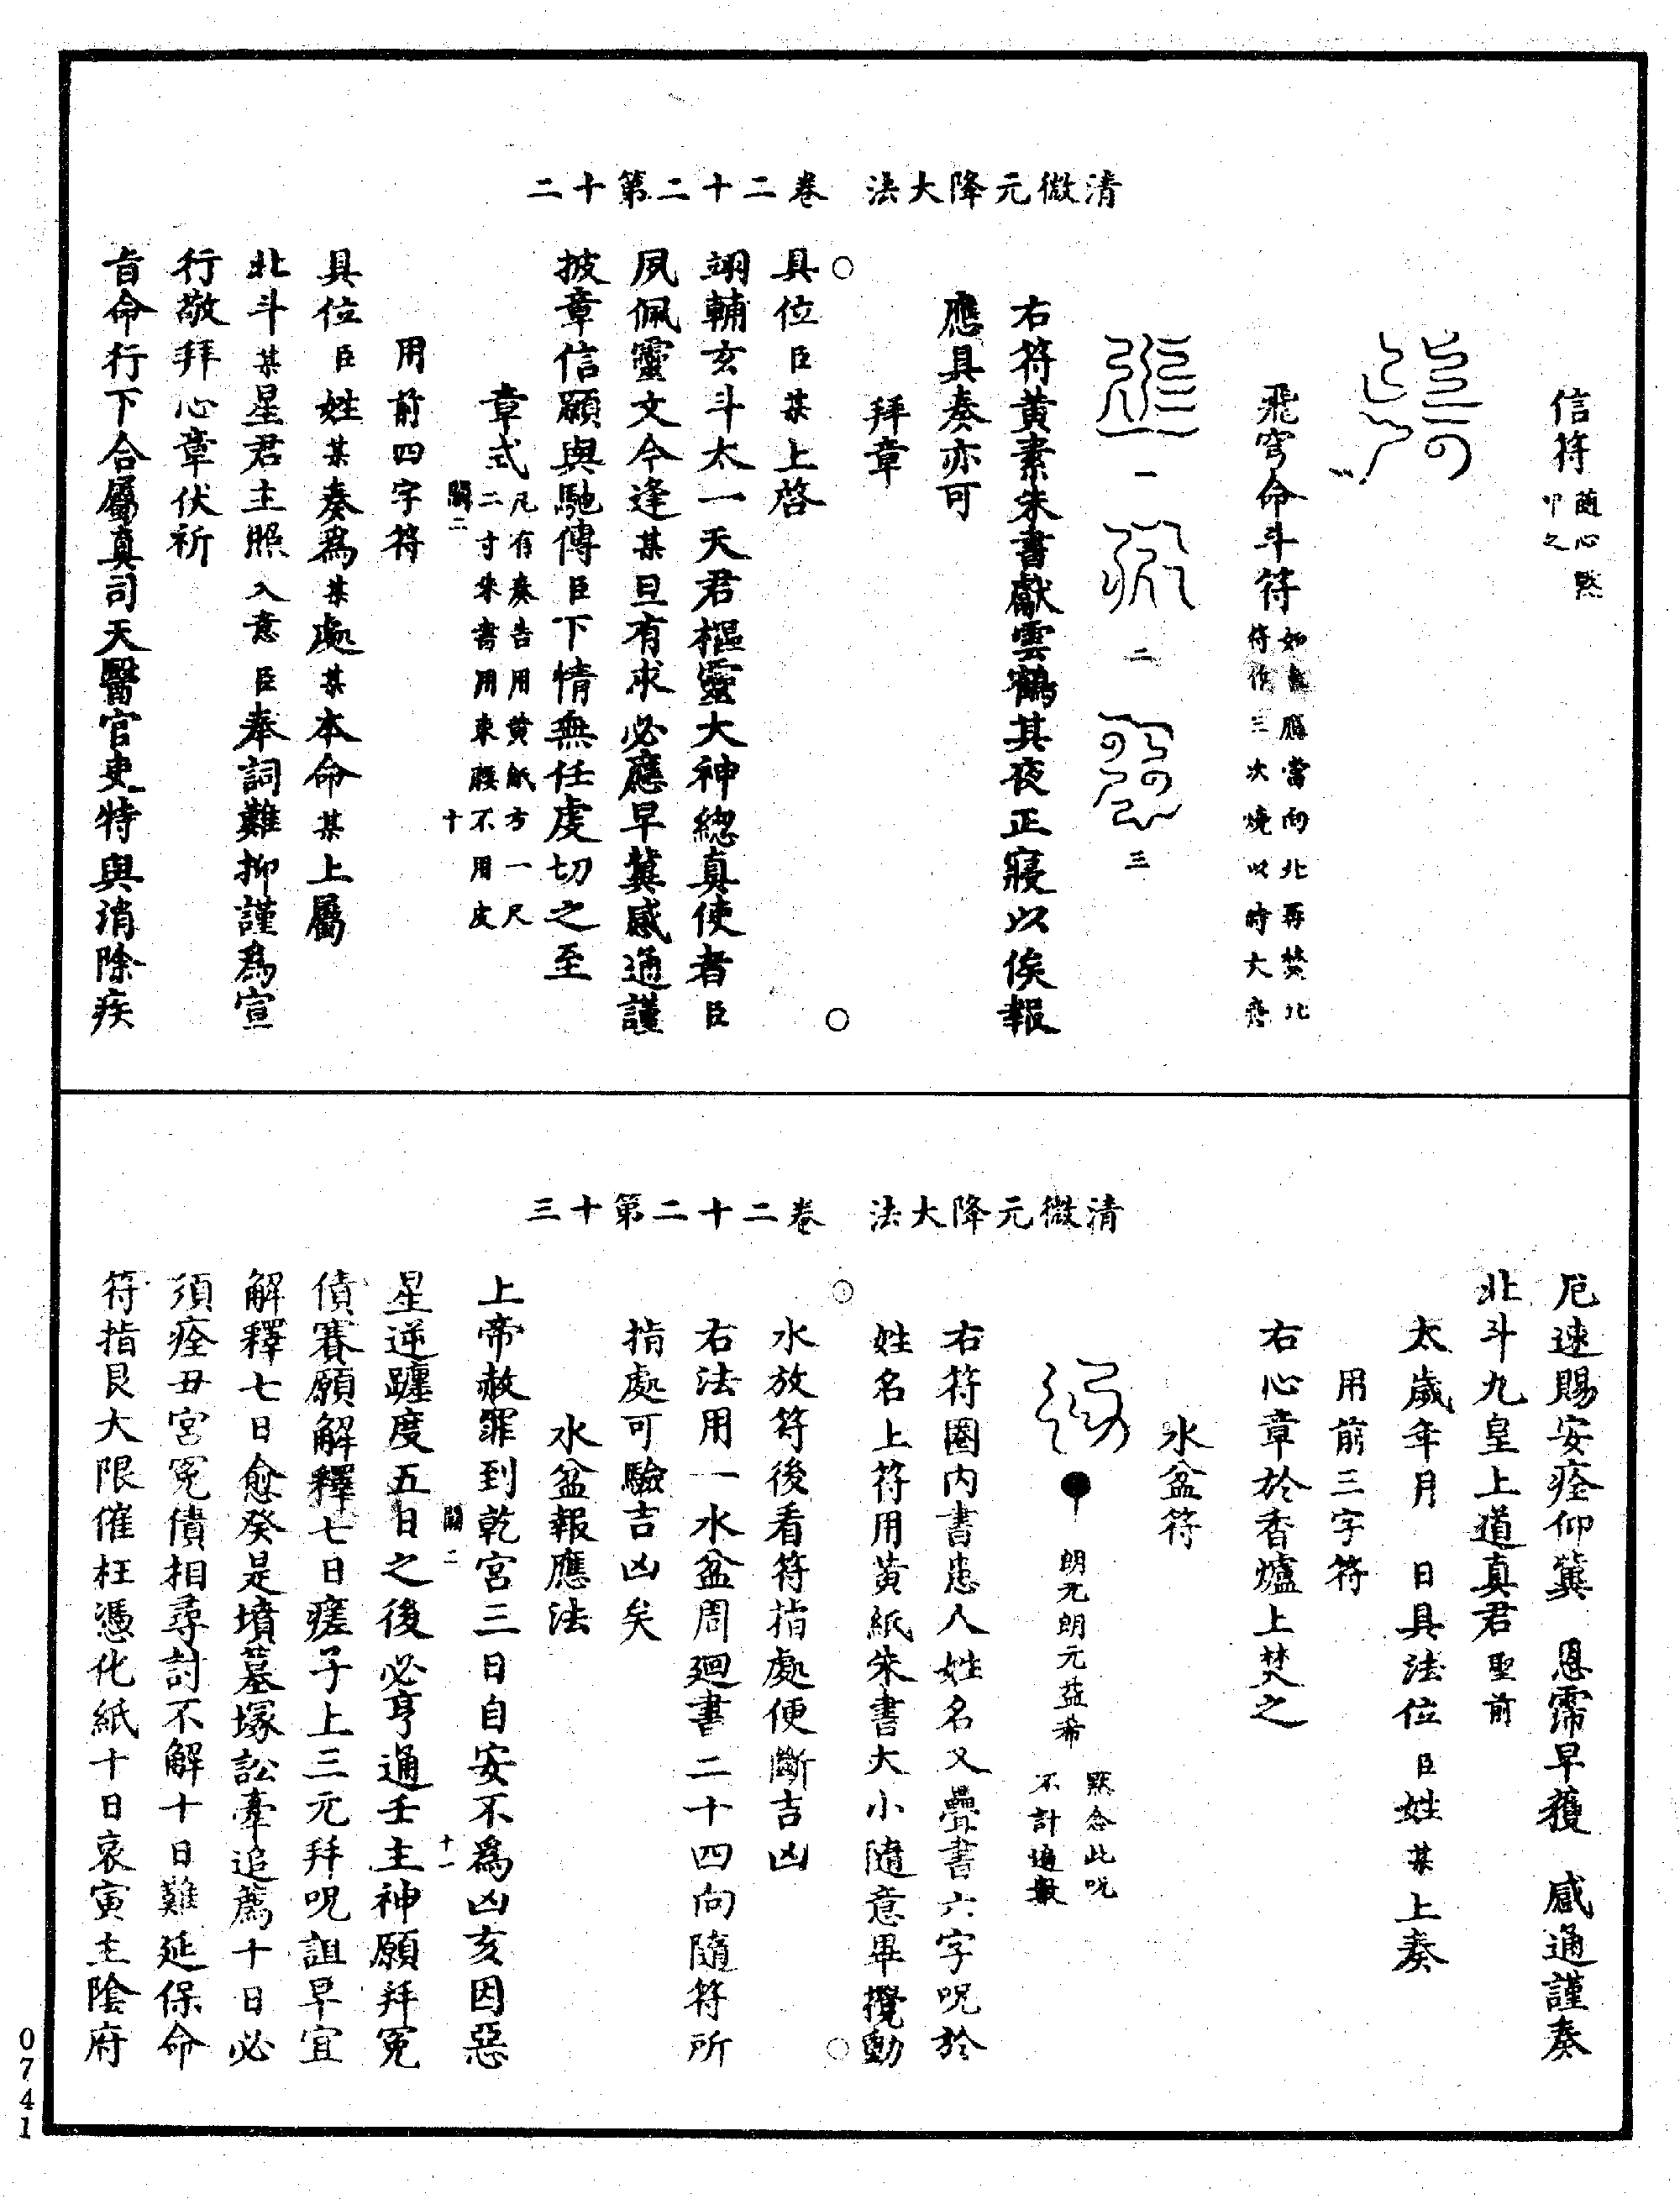 清微元降大法　卷二十二第十二
信符隨心點
卩之
飛穹命斗符
應當向北再焚北
符作三次燒以時大應
一
二
三
右符黃素朱書獻雲鶴其夜正寢以俟報
應具奏亦可
拜章
具位臣某上啓
翊輔玄斗太一天君樞靈大神總真使者臣
夙佩靈文今逢某旦有求必應早冀感通謹
披章信願與馳傳臣下情無任虔切之至
章式凡有奏告用黃紙方一尺
二寸朱書用東膠不用皮
關二　十
用前四字符
具位臣姓某奏爲某處某本命某上屬
北斗某星君主照入意臣奉詞難抑謹爲宣
行敬拜心章伏祈
旨命行下合屬真司天醫官吏特與消除疾
清微元降大法　卷二十二第十三
厄速賜安痊仰冀　恩霈早獲　感通謹奏
北斗九皇上道真君聖前
太歲年月　日具法位臣姓某上奏
用前三字符
右心章於香爐上焚之
水盆符
朗元朗元益希
默念此呪
不計遍數
右符圈内書患人姓名又疊書六字呪於
姓名上符用黃紙朱書大小隨意畢攪動
水放符後看符指處便斷吉凶
右法用一水盆周迴書二十四向隨符所
指處可驗吉凶矣
水盆報應法
上帝赦罪到乾宮三日自安不爲凶亥因惡
關二　十一
星逆躔度五日之後必亨通壬主神願拜冤
債賽願解釋七日瘥子上三元拜呪詛早宜
解釋七日愈癸是墳墓塚訟牽追薦十日必
須痊丑宮冤債相尋討不解十日難延保命
符指艮大限催枉憑化紙十日哀寅主陰府
0741